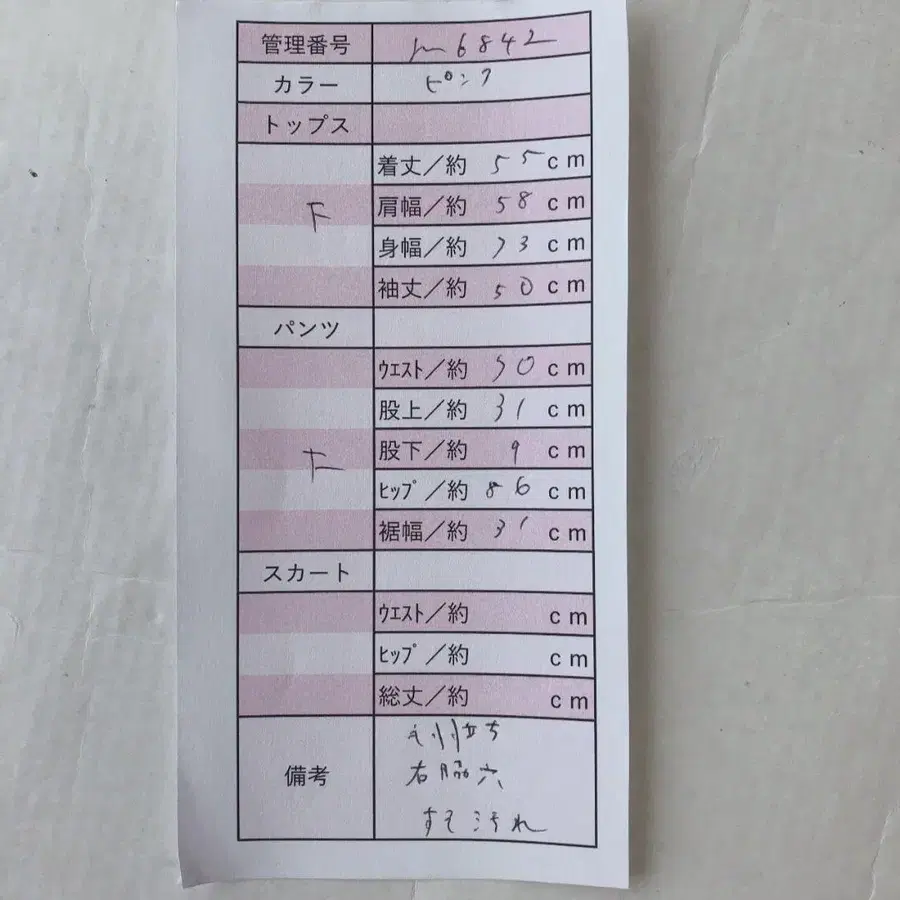 管理番号 m6842
カラー ピンク
トップス
F
着丈／約 55 cm
肩幅／約 58 cm
身幅／約 73 cm
袖丈／約 50 cm
パンツ
F
ｳｴｽﾄ／約 cm
股上／約 31 cm
股下／約 9 cm
ﾋｯﾌﾟ／約 86 cm
裾幅／約 31 cm
スカート
ｳｴｽﾄ／約 cm
ﾋｯﾌﾟ／約 cm
総丈／約 cm
備考
立ち
右脇穴
すそ汚れ